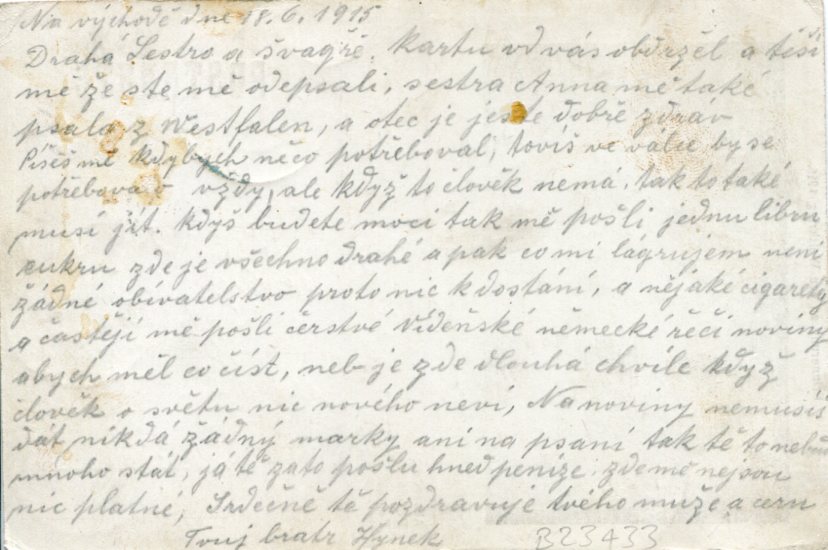 Na východě dne 18.6.1915
Drahá Sestro a švagře, kartu vd vás obdrzěl a těší
mě že ste mě odepsali, sestra Anna mě také
psala z Westfalen, a otec je jeste dobře zdráv
Pišéš mě kdybych něco potřeboval, tovíš ve válce by se
potřebova o vždy, ale když to člověk nemá, tak to také
musí jít. kdyš budete moci tak mě pošli jednu libru
cukru zde je všechno drahé a pak co mi lágrujem není
žádné obivatelstvo proto nic k dostání, a nějaké cigarety
a častěji mě pošli čerstvé Vídeňské německé řéči noviny
abych měl co číst, neb je zde dlouhá chvíle když
člověk o světu nic nového neví, Na noviny nemusíš
dát nikdá žádný marky ani na psaní tak tě to nebud
mnoho stát, já tě zato pošlu hned penize zde mě nejsou
nic platné, Srdečně tě pozdravuje tvého muže a ceru
Tvuj bratr Hynek
B23433